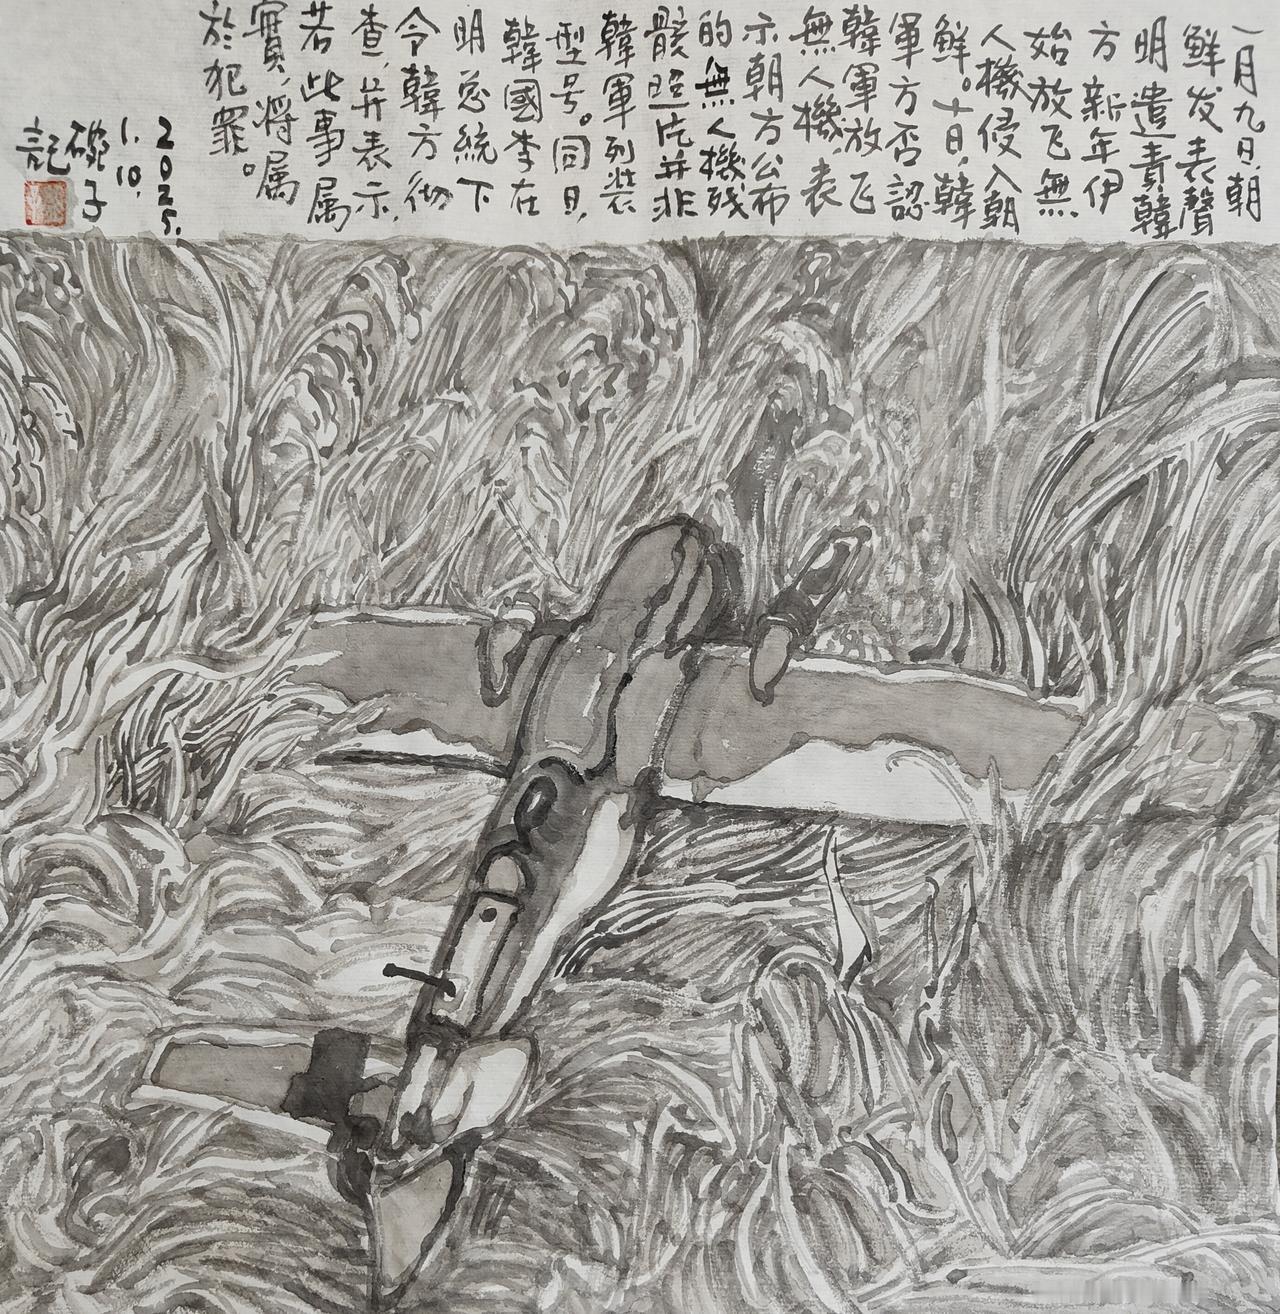 一月九日，朝
鲜发表聲
明遣责韓
方新年伊
始放飞無
人機侵入朝
鮮。十日，韓
軍方否認
韓軍放飞
無人機，表
示朝方公布
的無人機残
骸照片并非
韓軍列裝
型号。同日，
韓國李在
明总統下
令韓方彻
查，并表示，
若此事属
實，将属
於犯罪。
2025.
1.10.
子
記